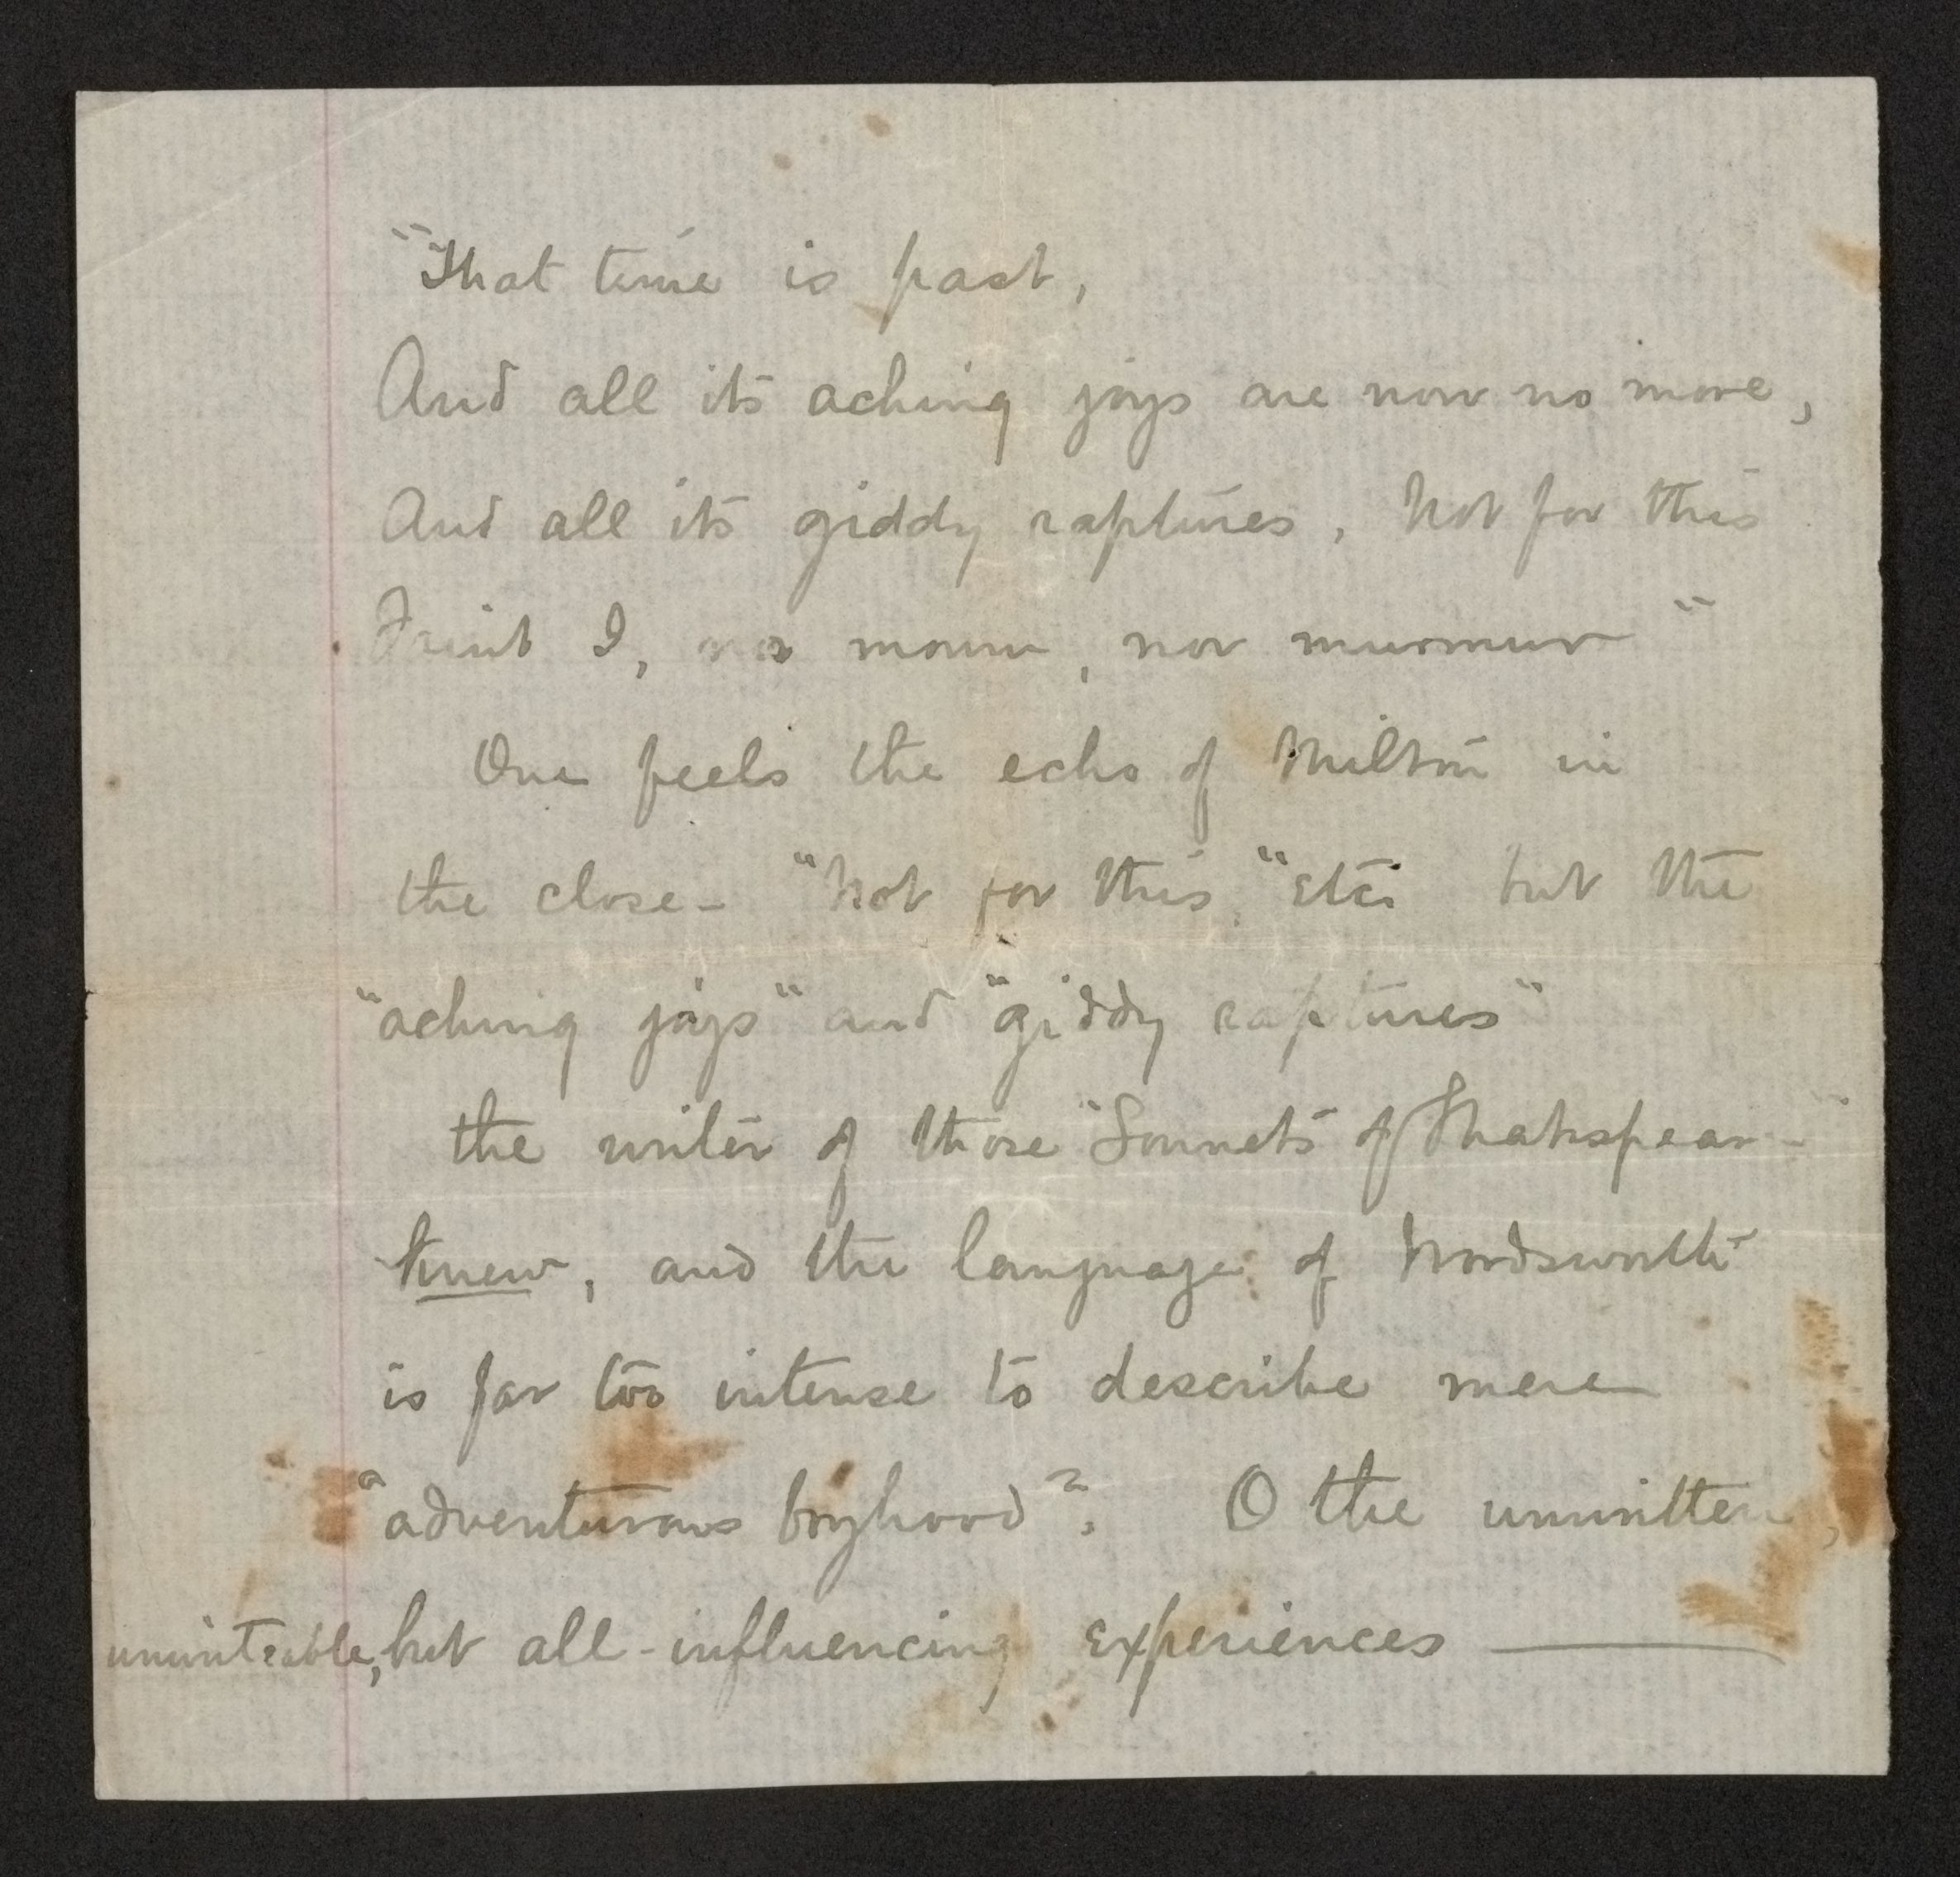 "That time is past,
And all its aching joys are now no more,
And all its giddy raptures, Not for this
Faint I, nor mourn, nor murmur"
One feels the echo of Milton in
the close – "Not for this," etc. but the
"aching joys" and "giddy raptures"
the writer of those "Sonnets of Shakspear"
knew, and the language of Wordsworth
is far too intense to describe mere
"adventurous boyhood". O the unwritten,
unwriteable, but all-influencing experiences —